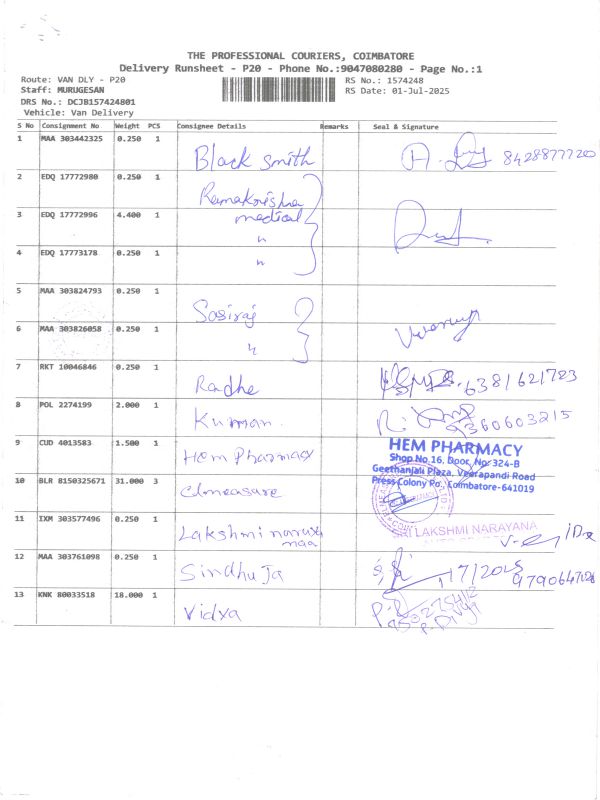 THE PROFESSIONAL COURIERS, COIMBATORE
Delivery Runsheet - P20 - Phone No.:9047080280 - Page No.:1
Route: VAN DLY - P20
RS No.: 1574248
Staff: MURUGESAN
RS Date: 01-Jul-2025
DRS No.: DCJB157424801
Vehicle: Van Delivery
S No Consignment No Weight PCS Consignee Details Remarks Seal & Signature
1 MAA 303442325 0.250 1 Black smith 8428877720
2 EDQ 17772980 0.250 1 Ramakrishna
3 EDQ 17772996 4.400 1 medical
4 EDQ 17773178 0.250 1 "
5 MAA 303824793 0.250 1 Sasiraj
6 MAA 303826058 0.250 1 "
7 RKT 10046846 0.250 1 Radhe 6381621723
8 POL 2274199 2.000 1 Kumar. 9360603215
9 CUD 4013583 1.500 1 Hem Pharmacy
HEM PHARMACY
Shop No.16, Door, No:324-B
Geethanjali Plaza, Veerapandi Road
Press Colony Po., Coimbatore-641019
10 BLR 8150325671 31.000 3
11 IXM 303577496 0.250 1 Lakshmi
SRI LAKSHMI NARAYANA
12 MAA 303761098 0.250 1 Sindhuja
13 KNK 80033518 18.000 1 Vidya
P. Divya